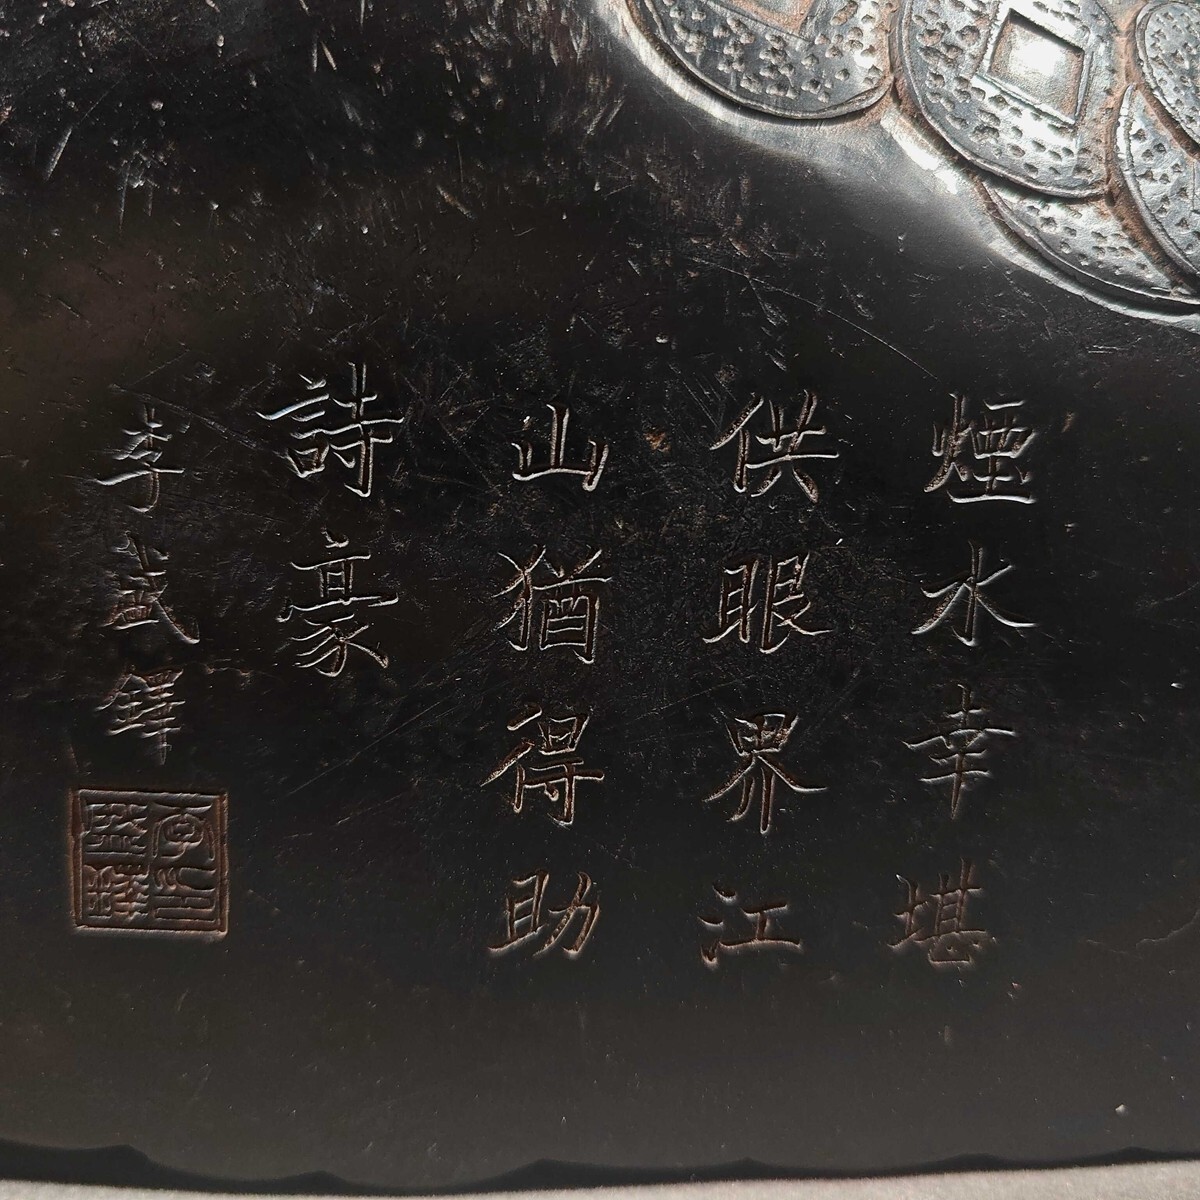 煙水幸堪
供眼界江
山猶得助
詩豪
李盛鐸